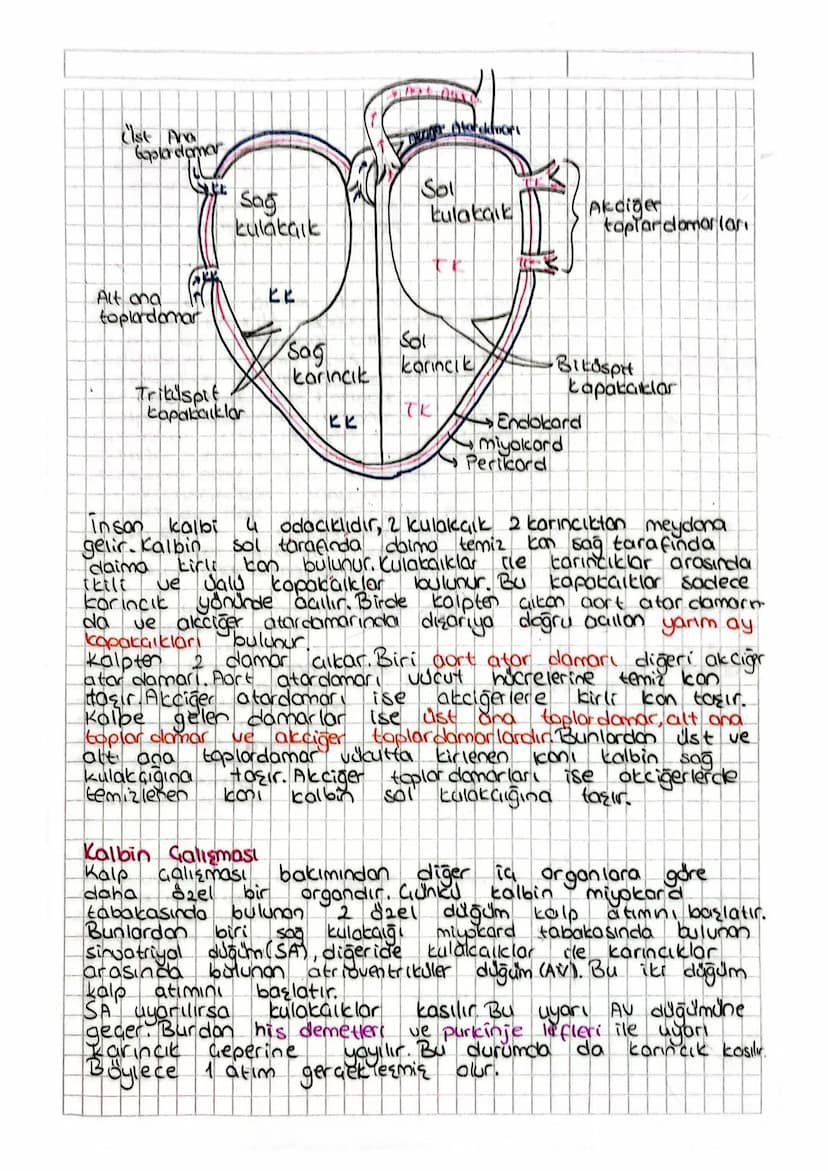 Aort Atar
Akciğer Atardamarı
Üst Ana
toplardamar
KK
Sağ
kulakçık
Sol
kulakçık
TK
Akciğer
toplardamarları
TK
KK
TK
Alt ana
toplardamar
KK
Sağ
karıncık
Sol
karıncık
Triküspit
kapakcıklar
Biküspit
kapakcıklar
KK
TK
Endokard
miyokard
Perikard
İnsan kalbi 4 odacıklıdır, 2 kulakcık 2 karıncıktan meydana
gelir. Kalbin sol tarafında daima temiz kan sağ tarafında
daima kirli kan bulunur. Kulakcıklar ile karıncıklar arasında
ikili ve üçlü kapakcıklar bulunur. Bu kapakcıklar sadece
karıncık yönünde açılır. Birde kalpten çıkan aort atardamarın
da ve akciğer atardamarında dışarıya doğru açılan yarım ay
kapakcıkları bulunur.
Kalpten 2 damar çıkar. Biri aort atar damarı diğeri akciğr
atar damarı. Aort atardamarı vücut hücrelerine temiz kan
taşır. Akciğer atardamarı ise akciğerlere kirli kan taşır.
Kalbe gelen damarlar ise üst ana toplardamar, alt ana
toplar damar ve akciğer toplardamarlardır. Bunlardan üst ve
alt ana toplardamar vücutta kirlenen kanı kalbin sağ
kulakcığına taşır. Akciğer toplar damarları ise akciğerlerde
temizlenen kanı kalbin sol kulakcığına taşır.
Kalbin Çalışması
Kalp çalışması bakımından diğer iç organlara göre
daha özel bir organdır. Çünkü kalbin miyokard
tabakasında bulunan 2 özel düğüm kalp atımını başlatır.
Bunlardan biri sağ kulakcığı miyokard tabakasında bulunan
sinoatriyal düğüm (SA), diğeride kulakcıklar ile karıncıklar
arasında bulunan atrioventriküler düğüm (AV). Bu iki düğüm
kalp atımını başlatır.
SA uyarılırsa kulakcıklar kasılır. Bu uyarı AV düğümüne
geçer. Burdan his demetleri ve purkinje lifleri ile uyarı
karıncık çeperine yayılır. Bu durumda da karıncık kasılır.
Böylece 1 atım gerçekleşmiş olur.